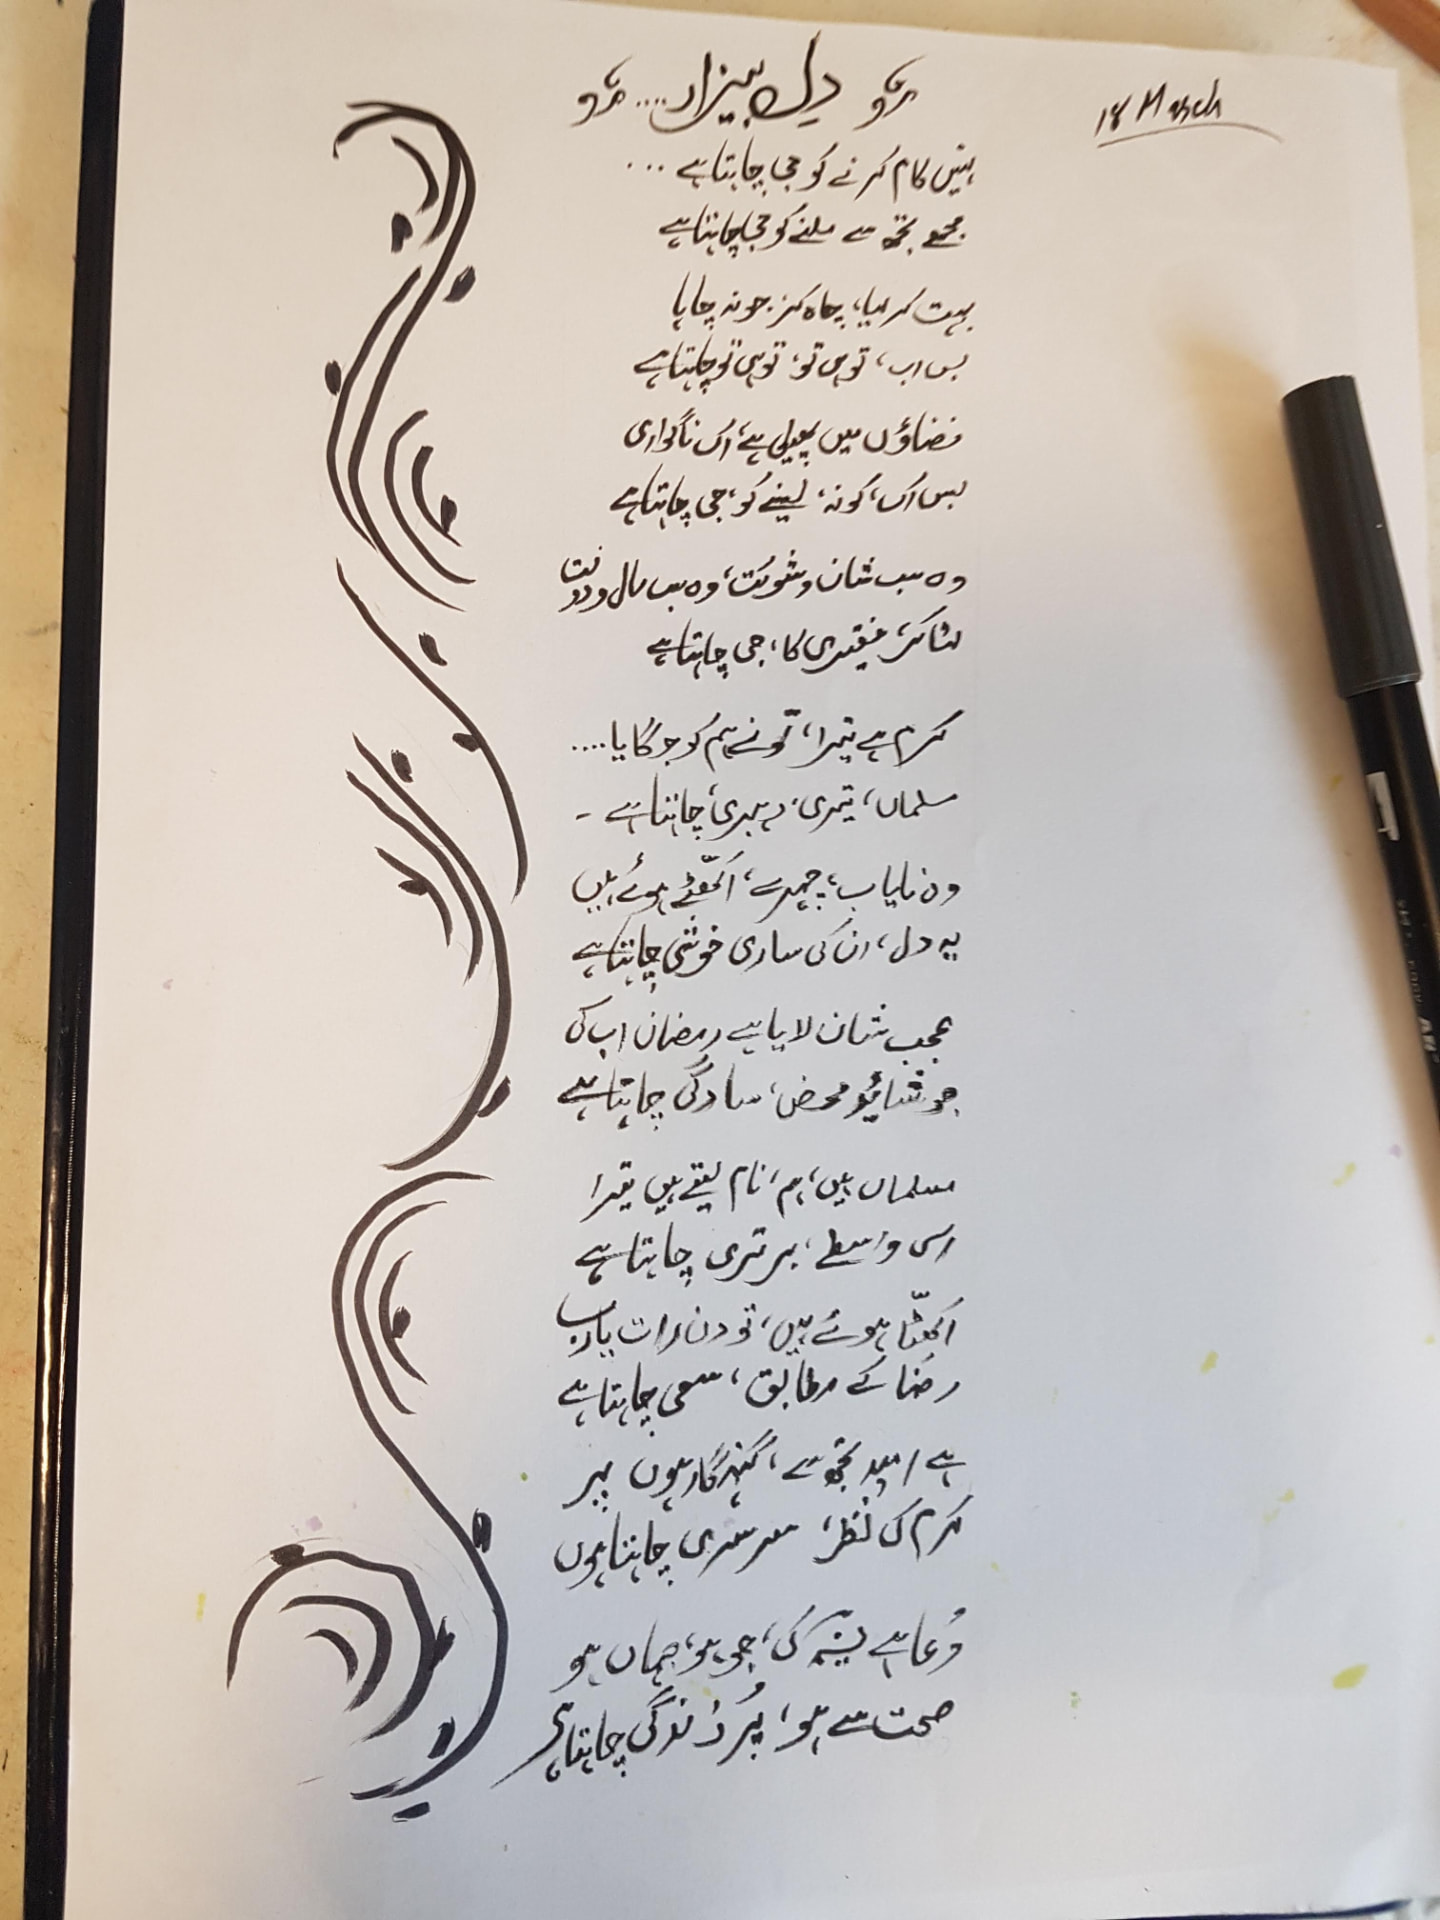 18 March
دلِ بیزار....
نہیں کام کرنے کو جی چاہتا ہے ...
مجھے تجھ سے ملنے کو جی چاہتا ہے
بہت کر لیا، چاہ کر، جو نہ چاہا
بس اب، تو ہی تو، تو ہی تو چاہتا ہے
فضاؤں میں پھیلی ہے، اک ناگواری
بس اک، گونہ، لینے کو، جی چاہتا ہے
وہ سب شان و شوکت، وہ سب مال و دولت
لٹا کر، فقیری کا، جی چاہتا ہے
کرم ہے تیرا، تُو نے ہم کو جگایا....
مسلماں، تیری، رہبری، چاہتا ہے -
وہ نایاب، چہرے، اکھٹّے ہوئے ہیں
یہ دل، ان کی ساری خوشی چاہتا ہے
عجب شان لایا ہے رمضان اب کی
جو محض، سادگی چاہتا ہے
مسلماں ہیں، ہم، نام لیتے ہیں تیرا
اسی واسطے، برتری چاہتا ہے
اکھٹّا ہوئے ہیں، تو دن رات یارب
رضا کے مطابق، سعی چاہتا ہے
ہے امید تجھ سے، گنہگار ہوں پر
کرم کی نظر، سرسری چاہتا ہوں
دُعا ہے کی، جو ہو، جہاں ہو
صحت سے ہو، پُر، زندگی چاہتا ہے